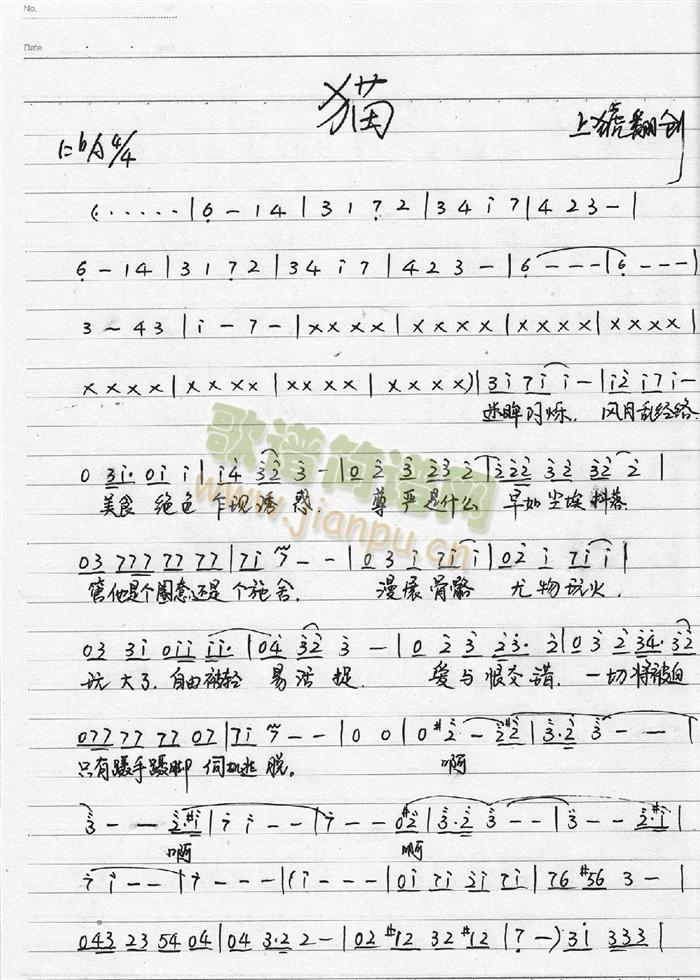 No.
Date
猫
1=bA 4/4
(······|6-14|3172|34i7|423-|
6-14|3172|34i7|423-|6---|6---|
3-43|i-7-|××××|××××|××××|××××|
××××|××××|××××|××××)|3i7ii-|i2i7i-
迷眸闪烁. 风月乱经络.
歌谱简谱网
www.jianpu.cn
0 3i·0i i|i4 32 3-|0 2 3 232|222 32 32 2|
美食 绝色 乍现诱惑. 尊严是什么 早如尘埃抖落
03 777 77 77|7i 7--|0 3 i 7i i|02 i 7i i|
管他是个圈套还是个施舍. 漫展骨骼 尤物玩火.
03 3i 0ii ii·|04 32 3-|0 2 3 23·2|03 2 34·32
玩大了.自由被轻易活捉 爱与恨交错. 一切将被迫
077 77 77 07|7i 7--|0 0|0 #2-2#2|3·2 3--|
只有蹑手蹑脚 伺机逃脱。 啊
3--2·#i|7 i--|7--0#2|3·2 3--|3--2·#i|
啊 啊
7 i--|7---|(i---|0i 7i 2i 7i|76 #56 3-|
043 23 54 04|04 3·2 2-|02 #12 32 #12|(7-)3i 333|